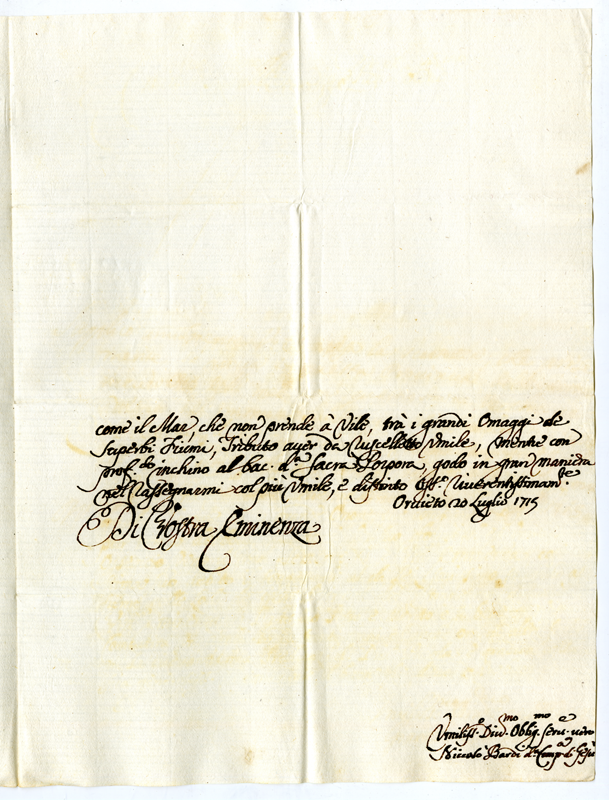 come il Mar, che non prende à vile, trà i grandi Omaggi de
superbi Fiumi, Tributo aver da Ruscelletto Umile, mentre con
prof.do inchino al bac. d.a Sacra Porpora, godo in gran maniera
nel Rassegnarmi col più Umile, e distinto Oss.o Riverentissimam.te
Orvieto 20 Luglio 1715
Di Vostra Eminenza
Umiliss.o Div.mo Obblig.mo Serv.e vero
Niccolò Bardi d.a Comp.a di Gesù